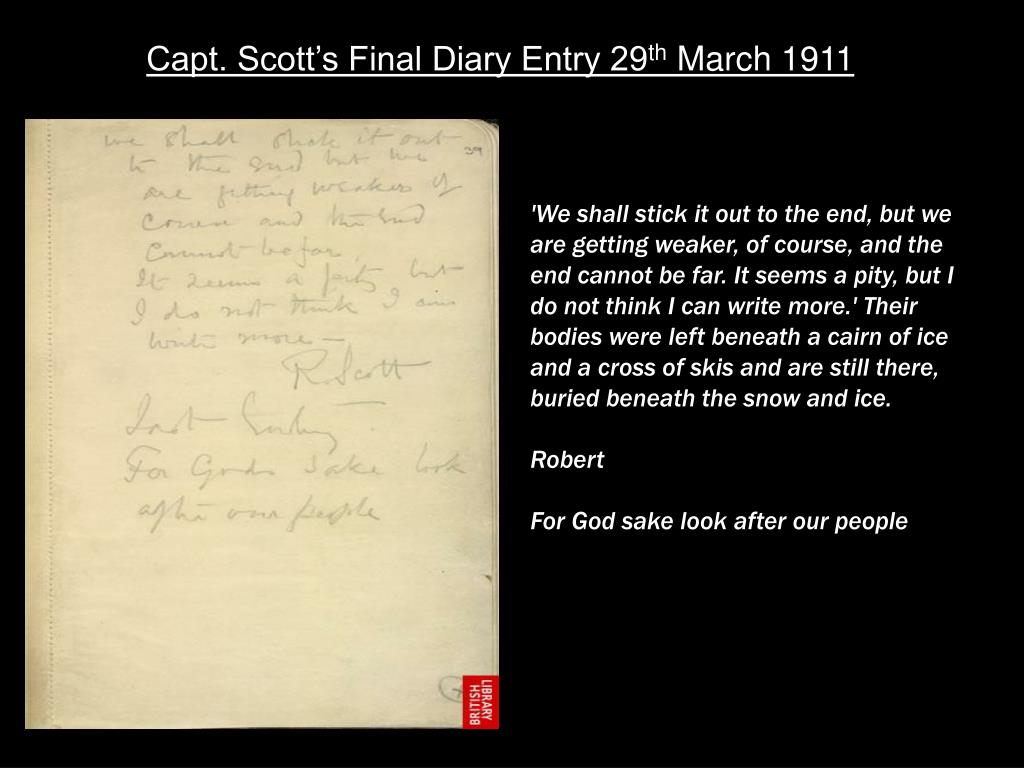 Capt. Scott’s Final Diary Entry 29th March 1911
we shall stick it out
39
to the end but we
are getting weaker of
course and the end
cannot be far.
It seems a pity but
I do not think I can
write more –
R. Scott
Last Entry
For Gods sake look
after our people
BRITISH
LIBRARY
'We shall stick it out to the end, but we
are getting weaker, of course, and the
end cannot be far. It seems a pity, but I
do not think I can write more.' Their
bodies were left beneath a cairn of ice
and a cross of skis and are still there,
buried beneath the snow and ice.
Robert
For God sake look after our people